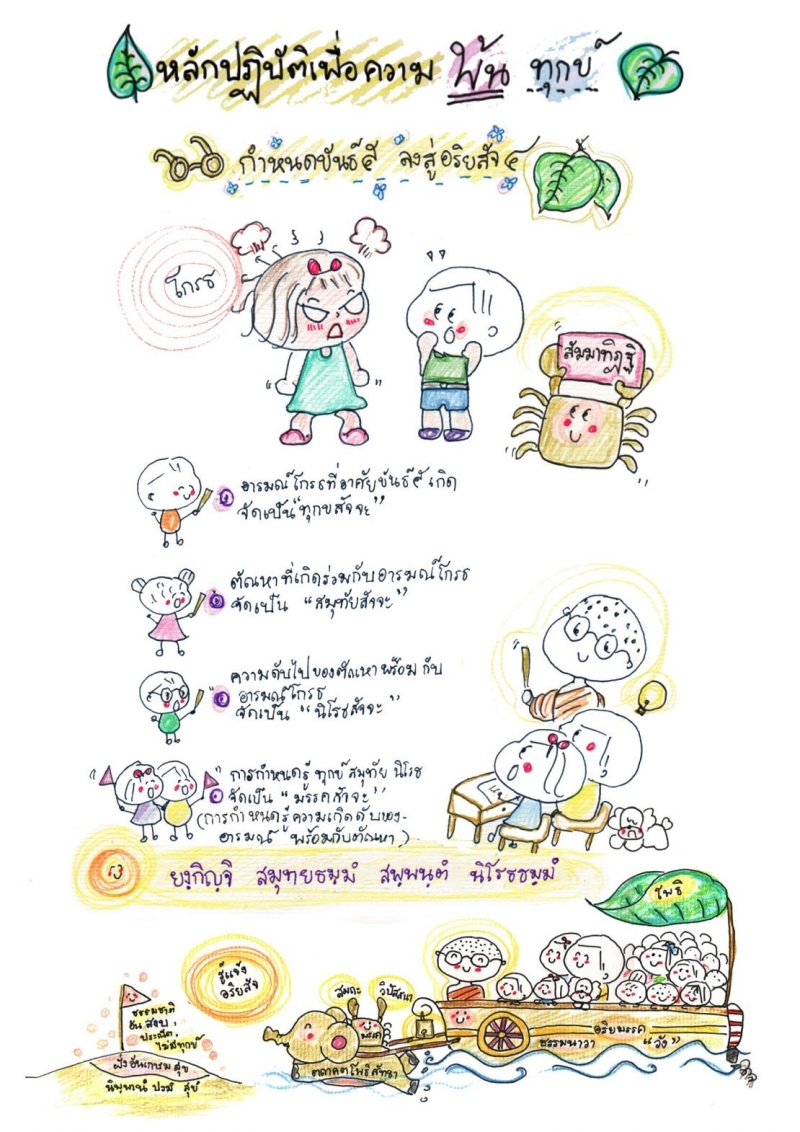 หลักปฏิบัติเพื่อความ พ้น ทุกข์
กำหนดขันธ์๕ ลงสู่อริยสัจ๔
โกรธ
สัมมาทิฏฐิ
อารมณ์โกรธที่อาศัยขันธ์๕ เกิด
จัดเป็น "ทุกขสัจจะ"
ตัณหาที่เกิดร่วมกับอารมณ์โกรธ
จัดเป็น "สมุทัยสัจจะ"
ความดับไปของตัณหาพร้อมกับ
อารมณ์โกรธ
จัดเป็น "นิโรธสัจจะ"
การกำหนดรู้ ทุกข์ สมุทัย นิโรธ
จัดเป็น "มรรคสัจจะ"
(การกำหนดรู้ความเกิดดับของ-
อารมณ์ พร้อมกับตัณหา)
ยงฺกิญฺจิ สมุทยธมฺมํ สพฺพนฺตํ นิโรธธมฺมํ
โพธิ
รู้แจ้ง
อริยสัจ
สมถะ
วิปัสสนา
ธรรมชาติ
อัน สงบ,
ประณีต,
ไม่มีทุกข์
ฝั่งอันเกษม สุข
นิพฺพานํ ปรมํ สุขํ
อริยมรรค
ธรรมนาวา "วัง"